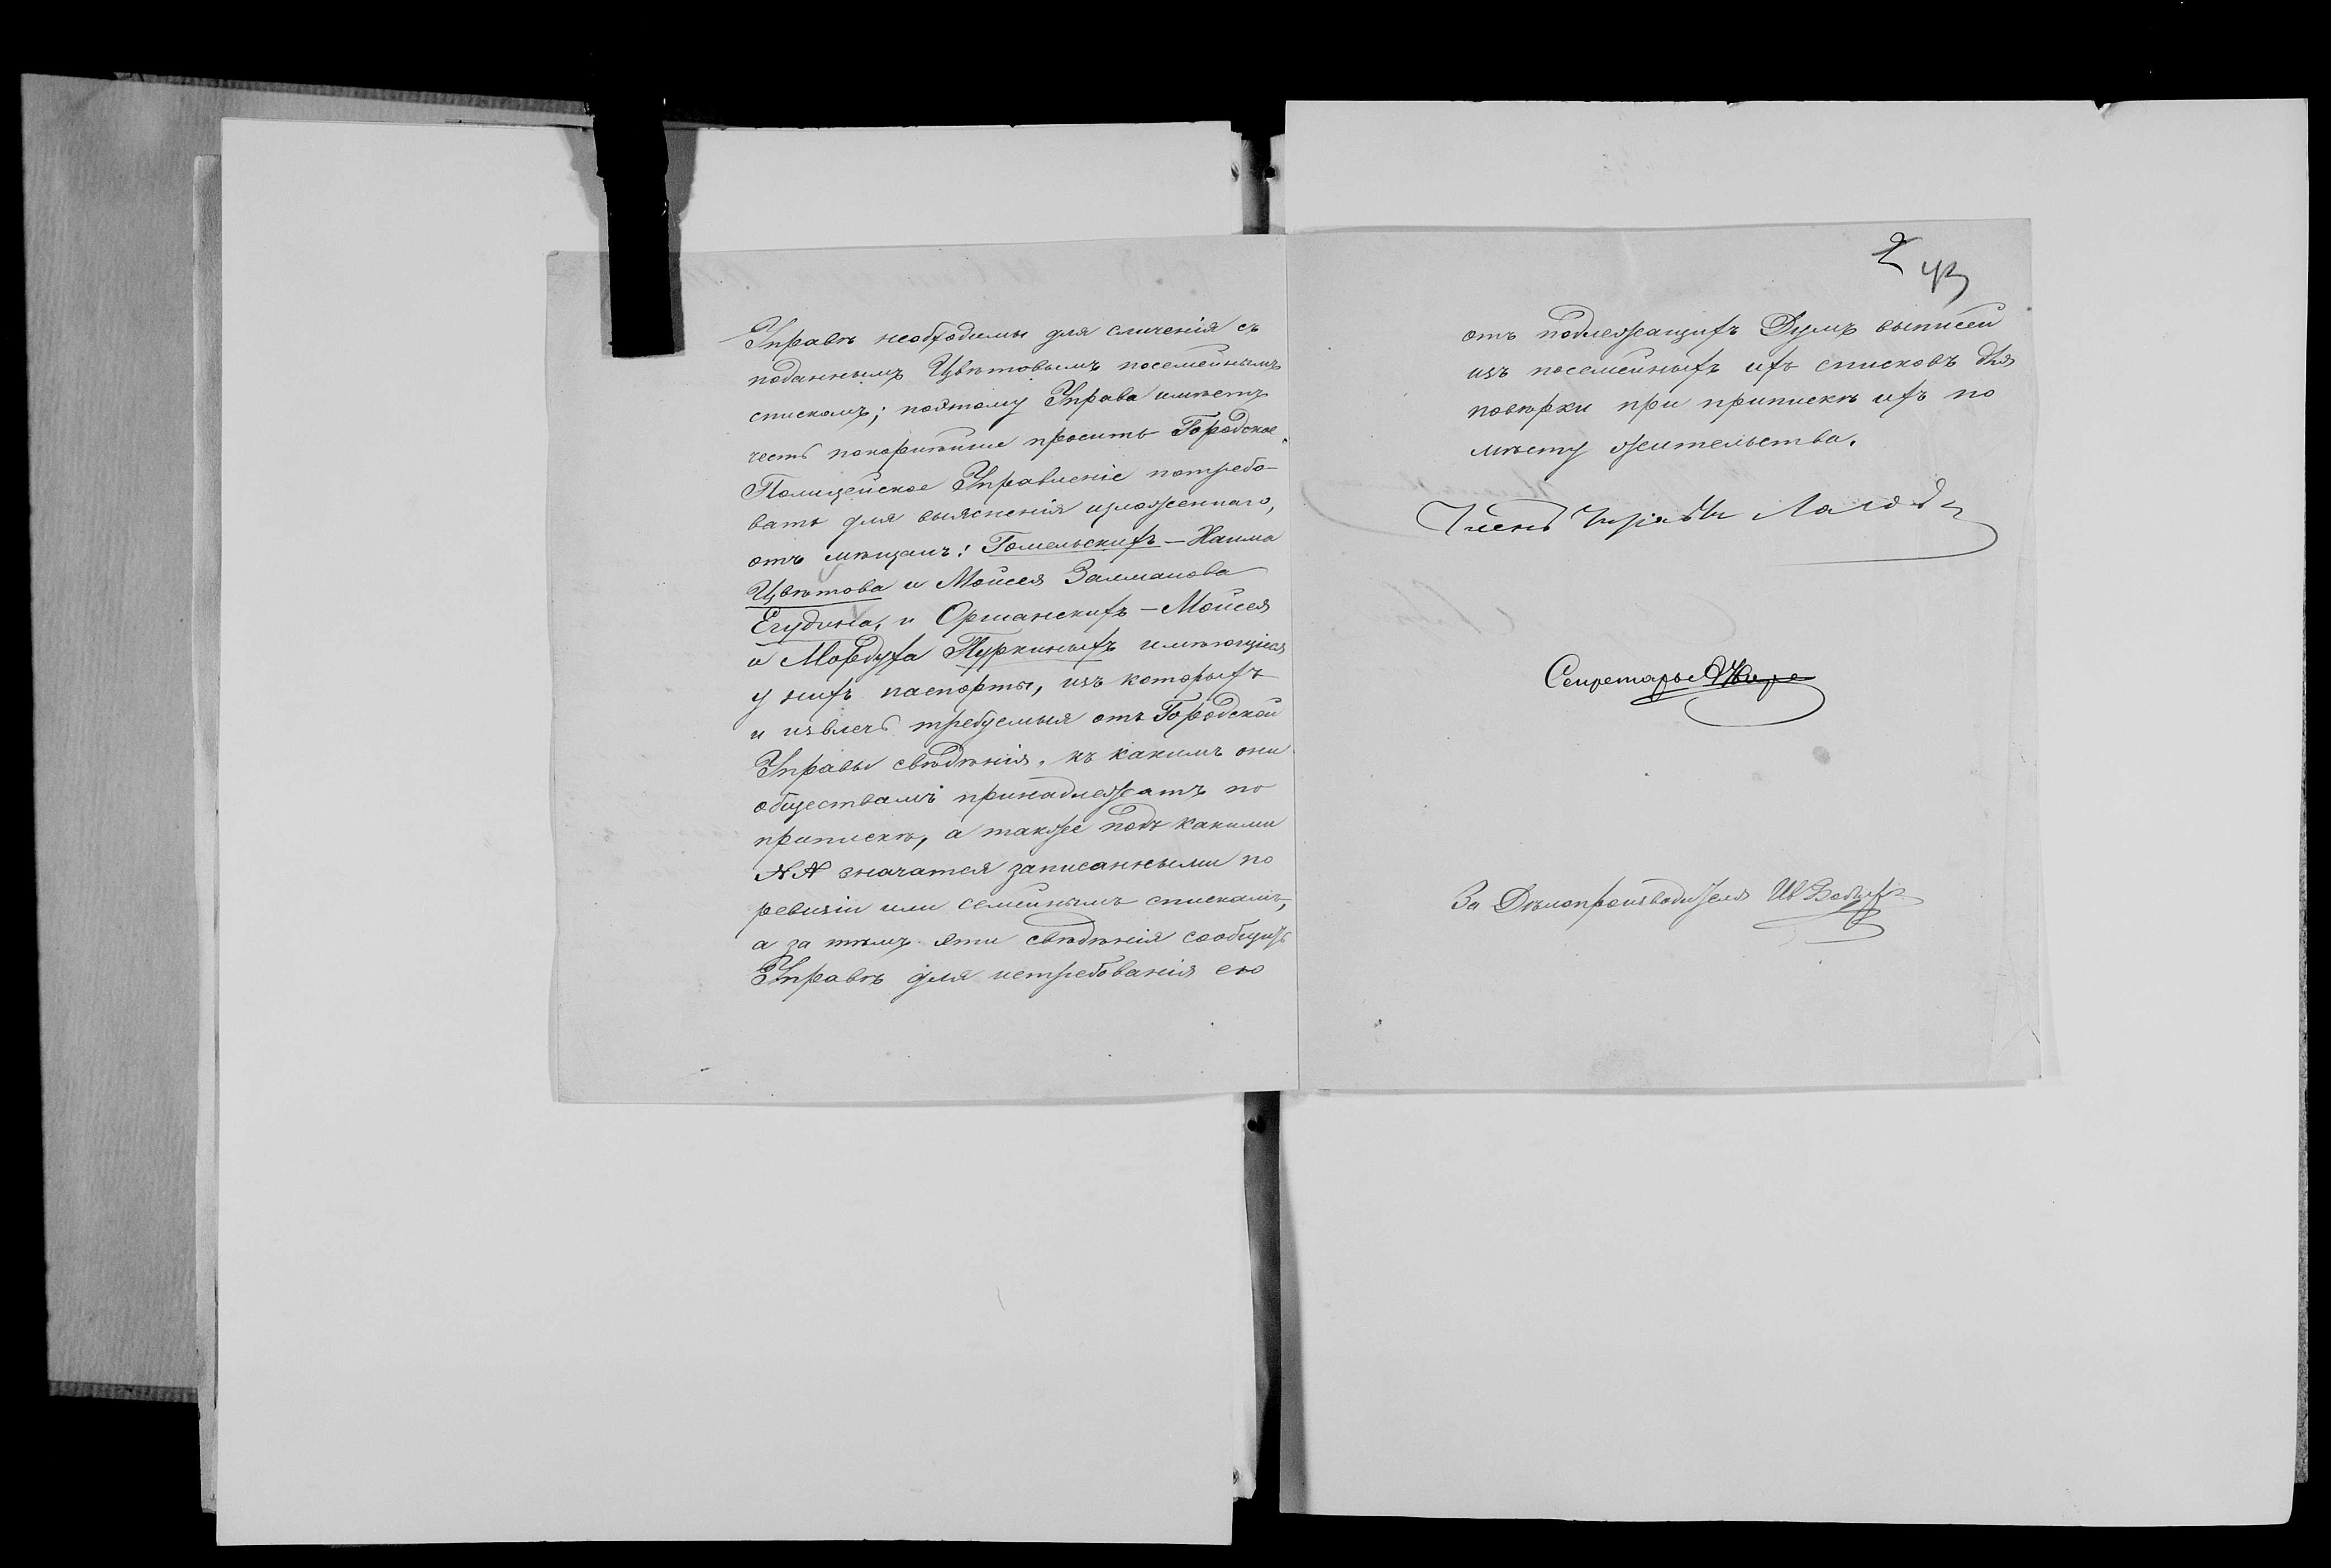 Управѣ необходимы для сличенія съ
поданнымъ Цвѣтовымъ посемейнымъ
спискомъ; поэтому Управа имѣетъ
честь покорнѣйше просить Городское
Полицейское Управленіе потребо-
вать для выясненія изложеннаго,
отъ мѣщанъ: Гомельскихъ – Хаима
Цвѣтова и Мойсея Залманова
Егудина, и Оршанскихъ – Мойсея
и Мордуха Пуркиныхъ имѣющіеся
у нихъ паспорты, изъ которыхъ
и извлечь требуемыя отъ Городской
Управы свѣдѣнія, къ какимъ они
обществамъ принадлежатъ по
припискѣ, а также подъ какими
NN значатся записанными по
ревизіи или семейнымъ спискамъ,
а за тѣмъ эти свѣдѣнія сообщить
Управѣ для истребованія ею
2 43
отъ подлежащихъ Думъ выписей
изъ посемейныхъ ихъ списковъ для
повѣрки при припискѣ ихъ по
мѣсту жительства.
Членъ Управы
Секретарь
За Дѣлопроизводителя